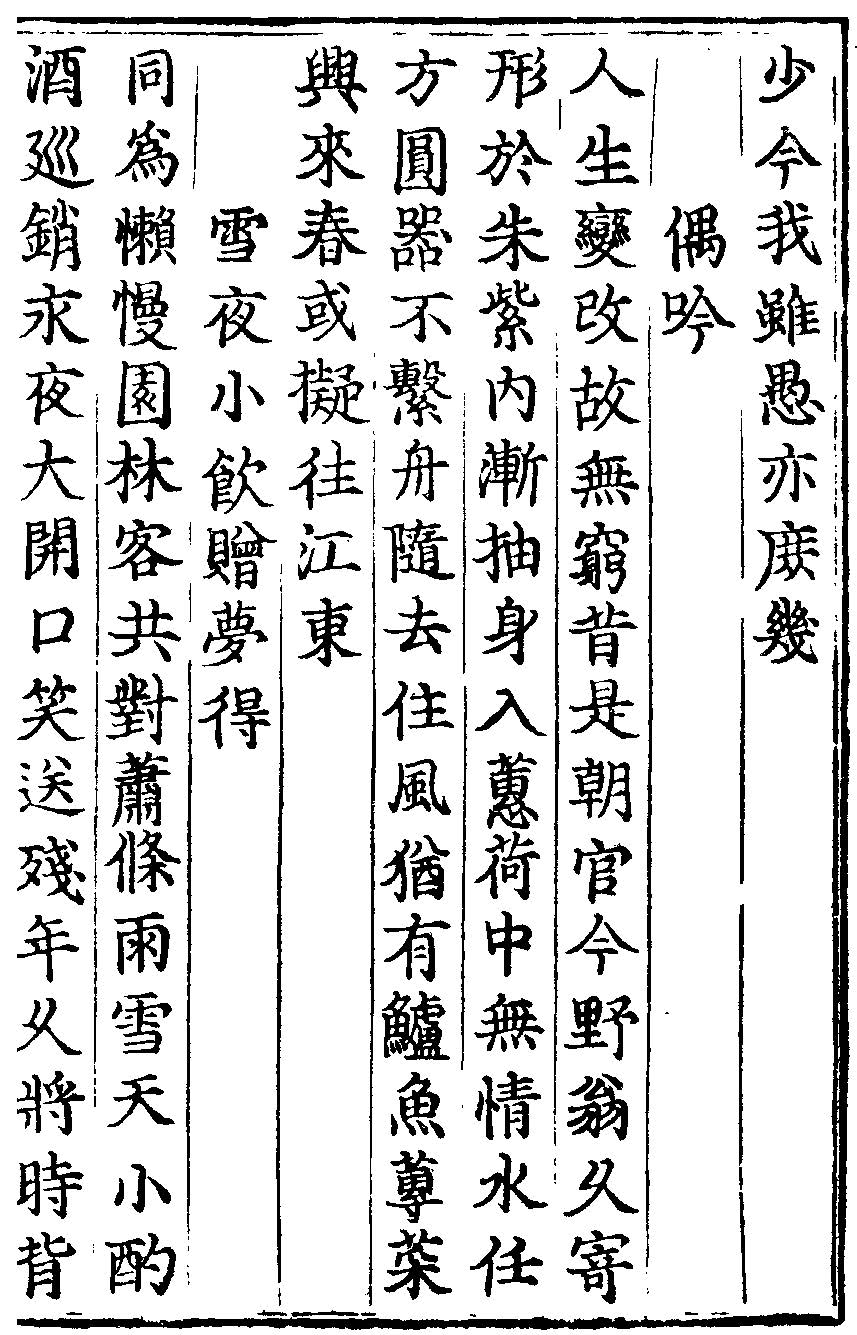 少今我雖愚亦庶幾
偶吟
人生變改故無窮昔是朝官今野翁乆寄
形於朱紫内漸抽身入蕙荷中無情水任
方圓器不繫舟隨去住風猶有鱸魚蓴菜
興來春或擬往江東
雪夜小飲贈夢得
同為懶慢園林客共對蕭條雨雪天小酌
酒巡銷永夜大開口笑送殘年乆將時背